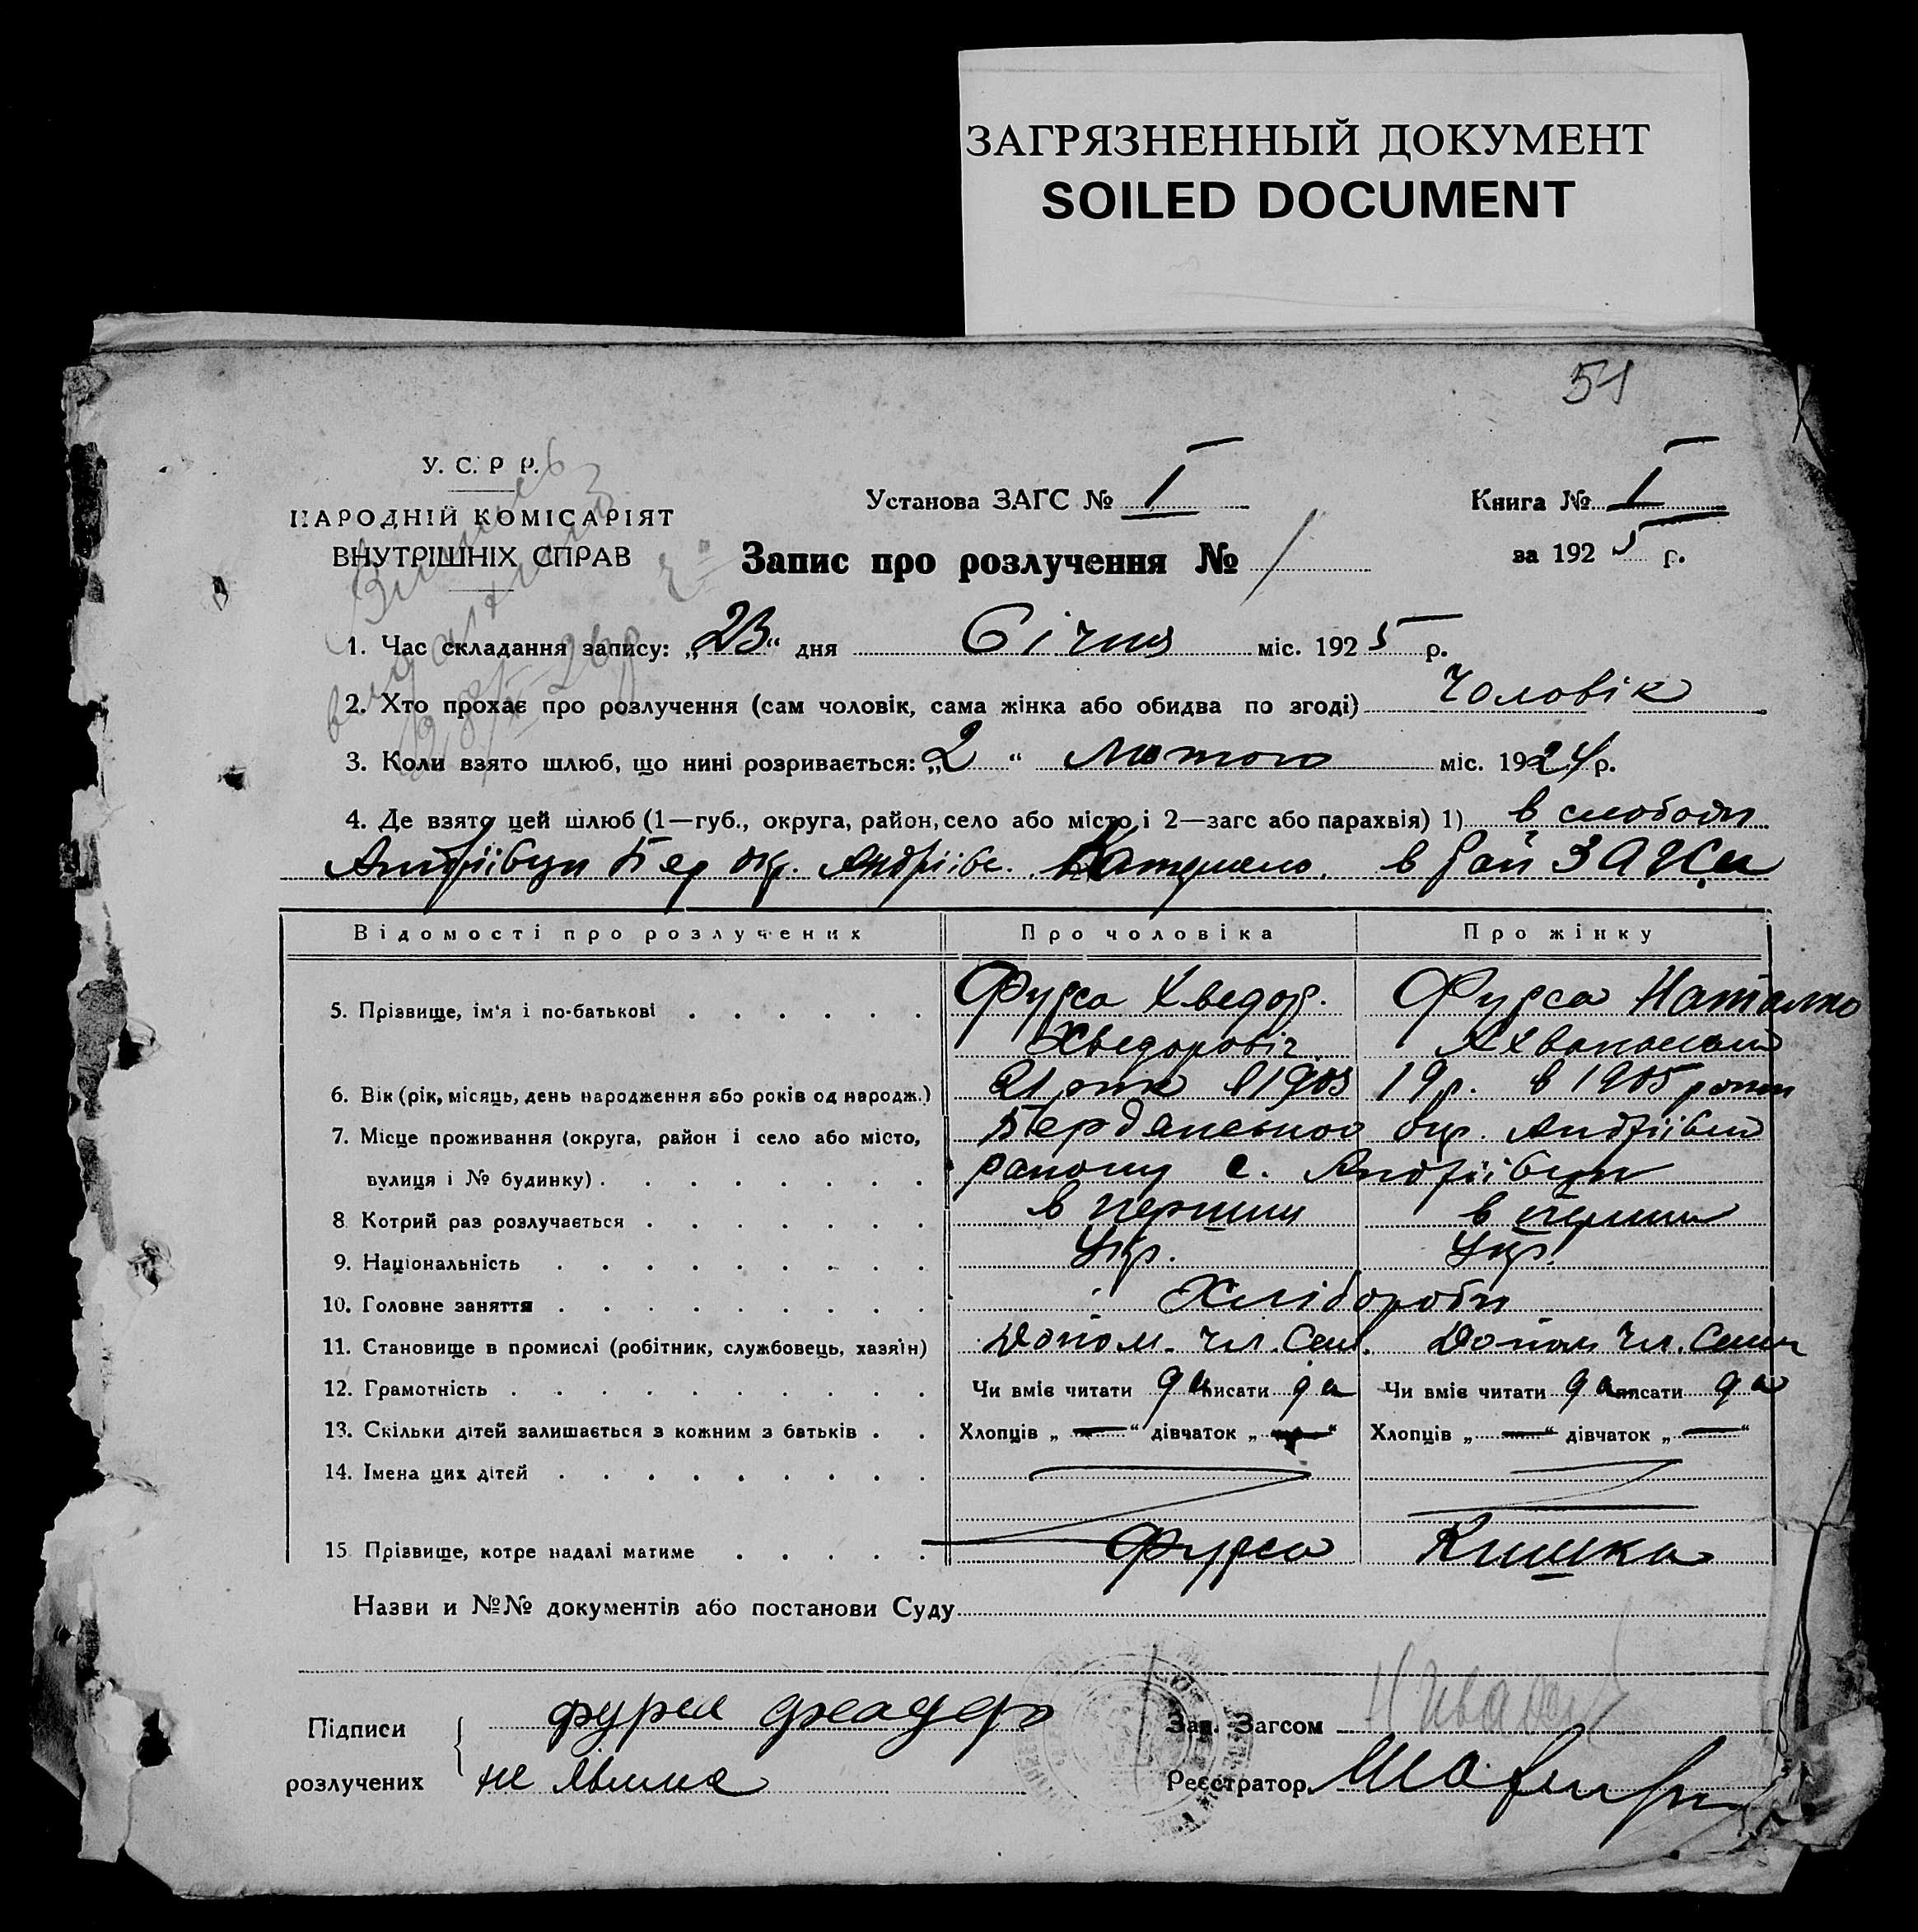 ЗАГРЯЗНЕННЫЙ ДОКУМЕНТ
SOILED DOCUMENT
51
У. С. Р Р.
НАРОДНІЙ КОМІСАРІЯТ
ВНУТРІШНІХ СПРАВ
Установа ЗАГС № I
Книга № I
за 1925 р.
Запис про розлучення № 1
1. Час складання запису: „23“ дня Січня міс. 1925 р.
2. Хто прохає про розлучення (сам чоловік, сама жінка або обидва по згоді) Чоловік
3. Коли взято шлюб, що нині розривається: „2“ Лютого міс. 1924 р.
4. Де взято цей шлюб (1—губ., округа, район, село або місто і 2—загс або парахвія) 1) в слободи
Андріївци Бер окр. Андріівс. в Рай ЗАГСи
Відомості про розлучених Про чоловіка Про жінку
5. Прізвище, ім'я і по-батькові Фурса Хведор. Фурса Наталю
Хведоровіч
6. Вік (рік, місяць, день народження або років од народж.) 21 рік в 1903 19 р. в 1905 роки
7. Місце проживання (округа, район і село або місто, Бердянськоо окр. Андріівки
вулиця і № будинку) районy с. Андріївци
8 Котрий раз розлучається в перший в перший
9. Національність Укр. Укр.
10. Головне заняття Хлібороби
11. Становище в промислі (робітник, службовець, хазяїн) Допом. чл. Сем. Допом чл. Семи
12. Грамотність Чи вміє читати да писати да Чи вміє читати да писати да
13. Скільки дітей залишається з кожним з батьків Хлопців „ — “ дівчаток „ — “ Хлопців „ — “ дівчаток „ — “
14. Імена цих дітей
15 Прізвище, котре надалі матиме Фурса Кишка
Назви и №№ документів або постанови Суду
Підписи фурса
розлучених не явилися
Зав. Загсом
Реєстратор